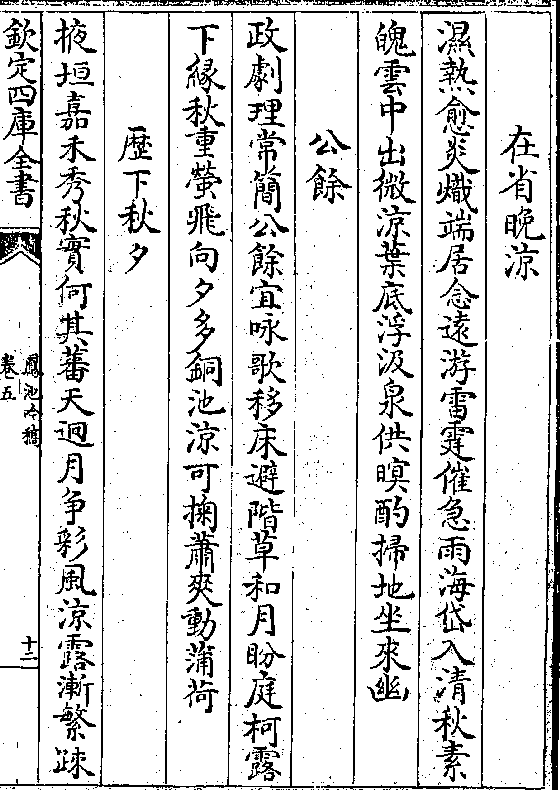 在省晚涼
濕熱愈炎熾端居念遠游雷霆催急雨海岱入清秋素
魄雲中出微涼葉底浮汲泉供暝酌掃地坐來幽
公餘
政劇理常簡公餘宜咏歌移床避階草和月盼庭柯露
下緣秋重螢飛向夕多銅池涼可掬蕭爽動蒲荷
歷下秋夕
掖垣嘉禾秀秋實何其蕃天迥月爭彩風涼露漸繁踈
欽定四庫全書
鳳池吟稿
卷五
十二